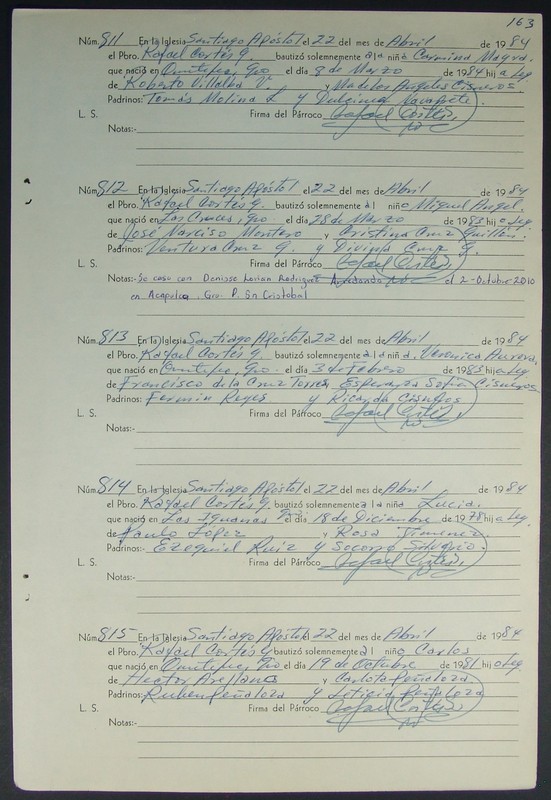 163
Núm. 811 En la Iglesia Santiago Apóstol el 22 del mes de Abril de 1984
el Pbro. Rafael Cortés G. bautizó solemnemente a la niña Carmina Mayra.
que nació en Ometepec, Gro el día 8 de Marzo de 1984 hija Leg
de Roberto Villalba V. y Ma de los Angeles Cisneros.
Padrinos: Tomás Molina L y Dulcinea Navarrete
L. S. Firma del Párroco Rafael Cortés,
Notas:-
Núm. 812 En la Iglesia Santiago Apóstol el 22 del mes de Abril de 1984
el Pbro. Rafael Cortés G. bautizó solemnemente al niño Miguel Angel.
que nació en Las Cruces, Gro. el día 28 de Marzo de 1983 hijo Leg
de José Narciso Montero y Cristina Cruz Guillén.
Padrinos: Ventura Cruz G. y Divinia Cruz G.
L. S. Firma del Párroco Rafael Cortés,
Notas:- Se caso con Denisse Lorian Rodriguez el 2-Octubre 2010
en Acapulco. Gro. P. Sn Cristobal
Núm. 813 En la Iglesia Santiago Apóstol el 22 del mes de Abril de 1984
el Pbro. Rafael Cortés G. bautizó solemnemente a la niña. Veronica Aurora.
que nació en Ometepec, Gro. el día 3 de Febrero de 1983 hija Leg.
de Francisco de la Cruz Torres, Esperanza Sofia Cisneros
Padrinos: Fermin Reyes y Ricarda Cisneros
L. S. Firma del Párroco Rafael Cortés
Notas:-
Núm. 814 En la Iglesia Santiago Apóstol el 22 del mes de Abril de 1984
el Pbro. Rafael Cortés G. bautizó solemnemente a la niña Lucia.
que nació en Las Iguanas Gro el día 18 de Diciembre de 1978 hija Leg.
de Paulo López y Rosa Jimenez.
Padrinos:- Ezequiel Ruiz y Socorro
L. S. Firma del Párroco Rafael Cortés,
Notas:-
Núm. 815 En la Iglesia Santiago Apóstol el 22 del mes de Abril de 1984
el Pbro. Rafael Cortés G bautizó solemnemente al niño Carlos
que nació en Ometepec, Gro el día 19 de Octubre de 1981 hijo Leg
de Hector Arellanes y Carlota Peñaloza
Padrinos: Ruben Peñaloza y Leticia Peñaloza
L. S. Firma del Párroco Rafael Cortés
Notas:-